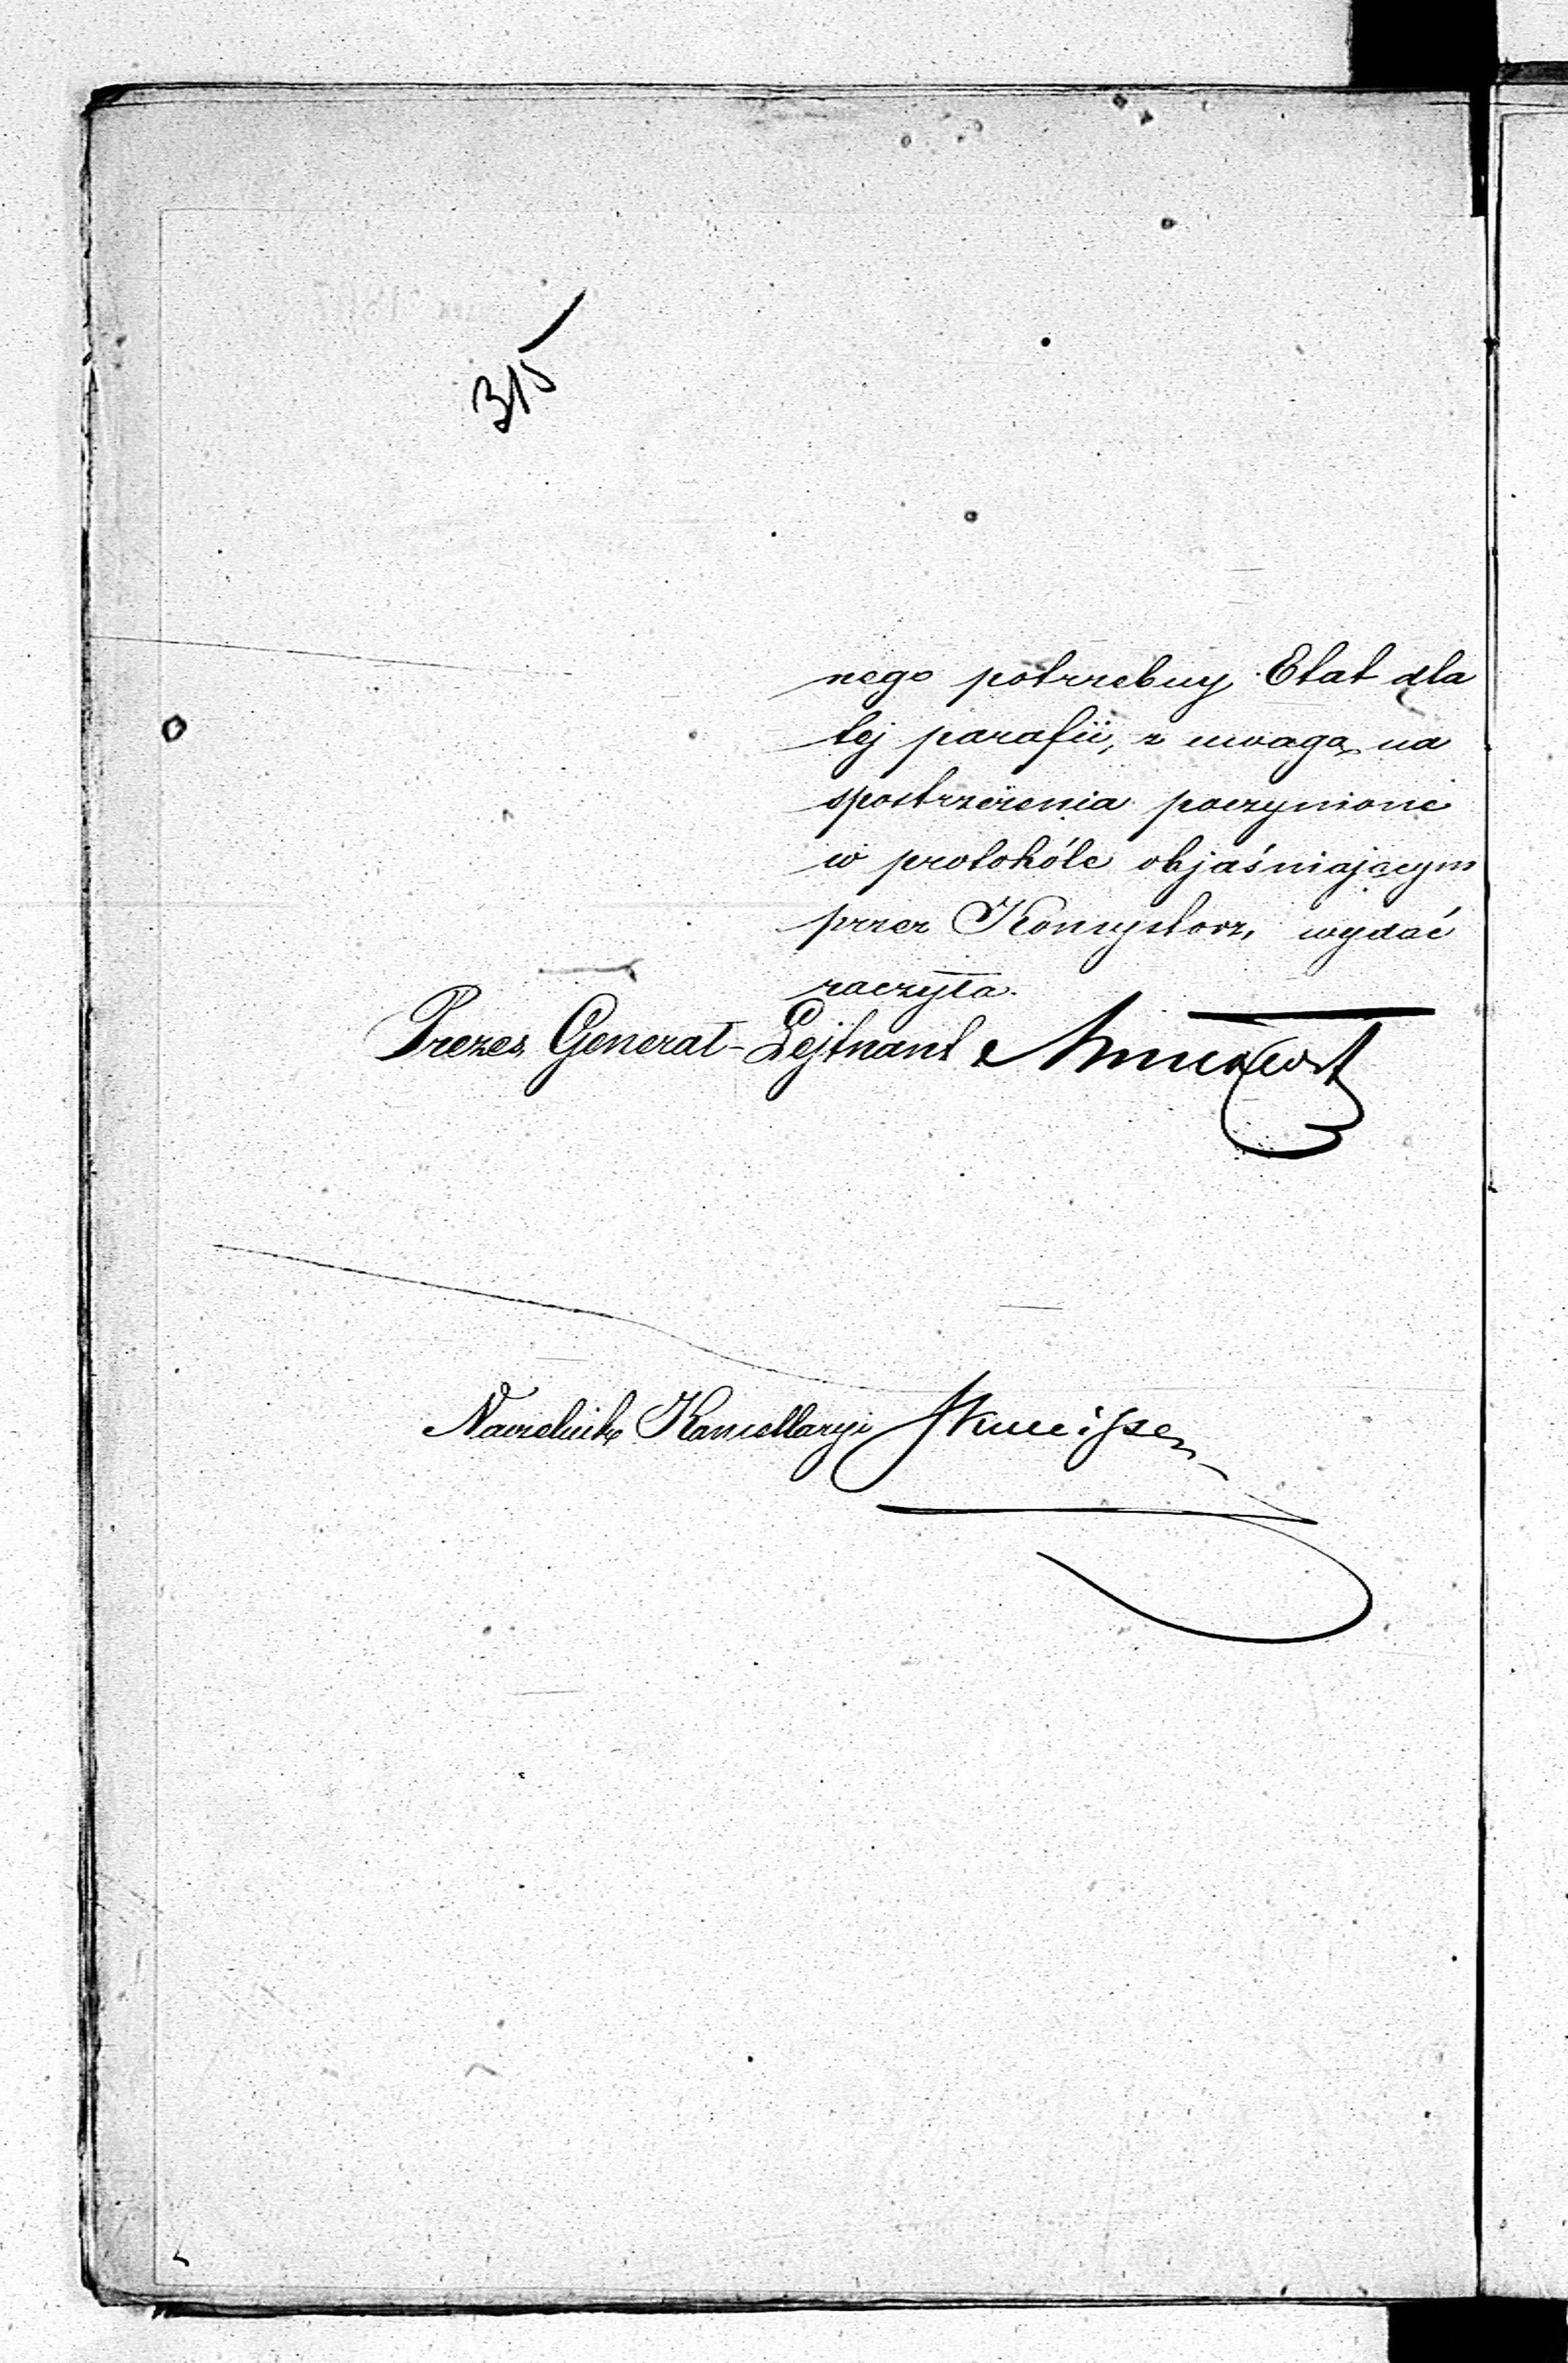 315
nego potrzebny Etat dla
tej parafii, z uwagą na
spostrzeżenia poczynione
w protokóle objaśniającym
przez Konsystorz, wydać
raczyła.
Prezes, Generał-Lejtnant
Naczelnik Kancellaryi